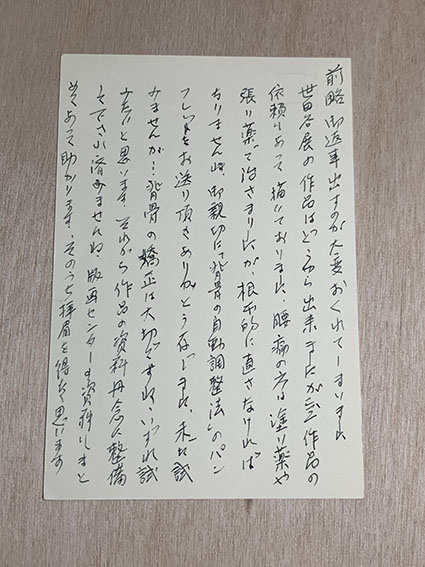 前略 御返事出すのが大変おくれてしまいました
世田谷展の作品はどうやら出来ましたが 作品の
依頼もあって描いております、腰痛の方は塗り薬や
張り薬で治まりましたが、根本的に直さなければ
なりませんね、御親切に「背骨の自動調整法」のパン
フレットをお送り頂きありがとう存じました、未だ試
みませんが…背骨の矯正は大切ですね、いづれ試
みたいと思います それから 作品の資料丹念に整備
して下さり済みませんね、版画センターの資料もまと
めてあって助かります、そのうち拝眉を得たく思います